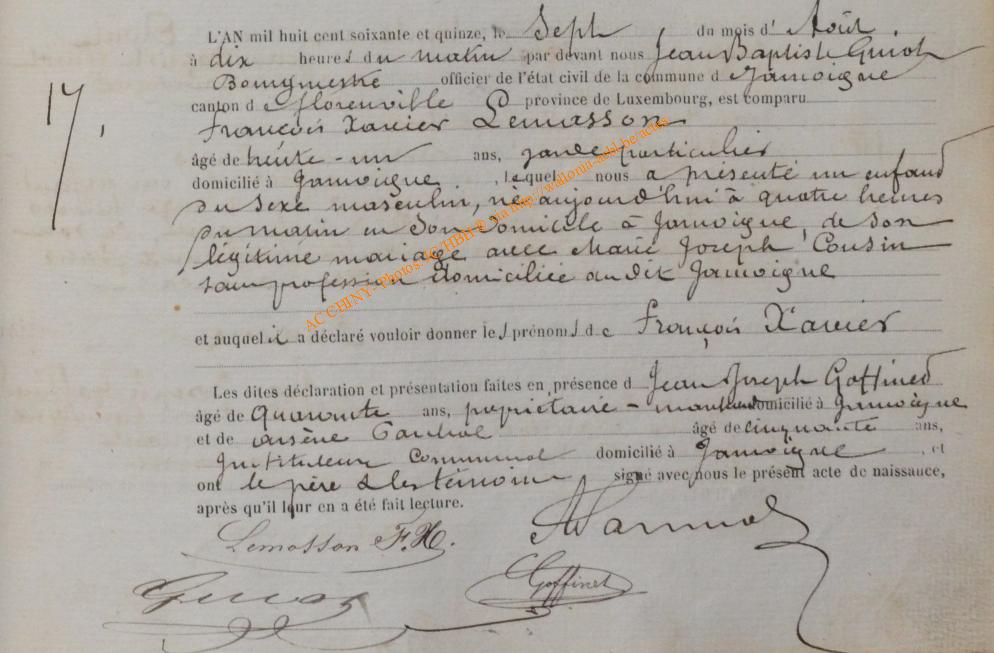 17,
L'AN mil huit cent soixante et quinze, le Sept du mois d'Août
à dix heures du matin par devant nous Jean Baptiste Guiot
Bourgmestre officier de l'état civil de la commune de Jamoigne
canton de florenville province de Luxembourg, est comparu
François Xavier Lemasson
âgé de trente-un ans, garde particulier
domicilié à Jamoigne, lequel nous a présenté un enfant
du sexe masculin, né aujourd'hui à quatre heures
du matin en son domicile à Jamoigne, de son
légitime mariage avec Marie Joseph Cousin
sans profession domiciliée au dit Jamoigne
et auquel il a déclaré vouloir donner les prénoms de François Xavier
Les dites déclaration et présentation faites en présence de Jean Joseph Goffinet
âgé de Quarante ans, propriétaire - domicilié à Jamoigne
et de arsène âgé de cinquante ans,
Instituteur Communal domicilié à Jamoigne, et
ont le père & les témoins signé avec nous le présent acte de naissance,
après qu'il leur en a été fait lecture.
Lemasson F.X.
Guiot
Goffinet
AC CHINY - Photos: AC HBH ® via http://wallonia-asbl.be/actes